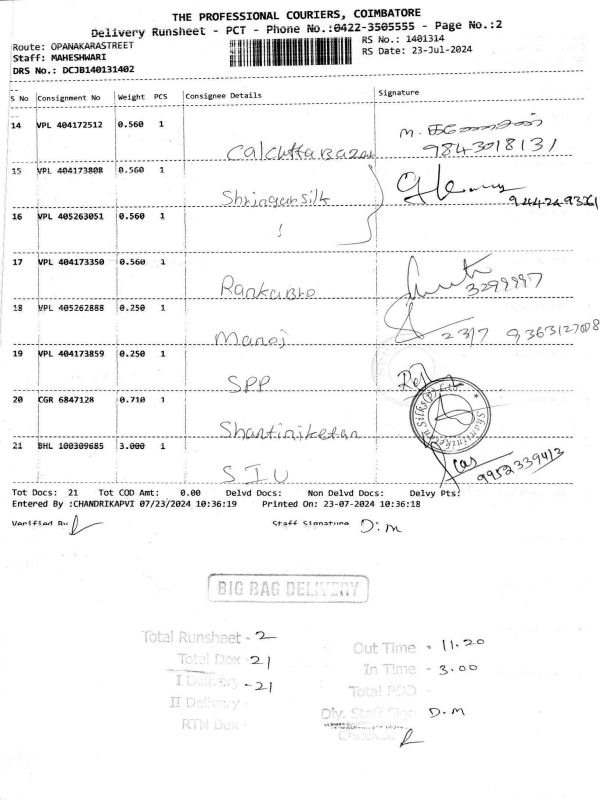 THE PROFESSIONAL COURIERS, COIMBATORE
Delivery Runsheet - PCT - Phone No.:0422-3505555 - Page No.:2
Route: OPANAKARASTREET RS No.: 1401314
Staff: MAHESHWARI RS Date: 23-Jul-2024
DRS No.: DCJB140131402
S No Consignment No Weight PCS Consignee Details Signature
14 VPL 404172512 0.560 1
Calcutta Bazar 9843018131
15 VPL 404173808 0.560 1
Shringar Silk
16 VPL 405263051 0.560 1
17 VPL 404173350 0.560 1
3299997
18 VPL 405262888 0.250 1
Manoj 2317 9363127008
19 VPL 404173859 0.250 1
SPP
20 CGR 6847128 0.710 1
Shantiniketan
21 BHL 100309685 3.000 1
SIU 9952339413
Tot Docs: 21 Tot COD Amt: 0.00 Delvd Docs: Non Delvd Docs: Delvy Pts:
Entered By :CHANDRIKAPVI 07/23/2024 10:36:19 Printed On: 23-07-2024 10:36:18
Verified By Staff Signature D.M
BIG BAG DELIVERY
Total Runsheet - 2 Out Time - 11.20
Total Dox - 21 In Time - 3.00
I Delivery - 21 Total POD -
II Delivery - Dly. Staff Sign D.M
RTN Dox - Checked